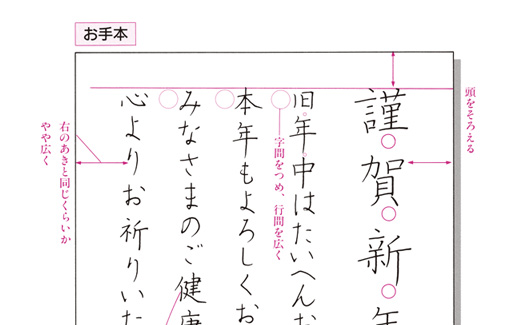 お手本
頭をそろえる
謹賀新年
旧年中はたいへんお
字間をつめ、行間を広く
本年もよろしくお
みなさまのご健康
心よりお祈りいた
右のあきと同じくらいか
やや広く